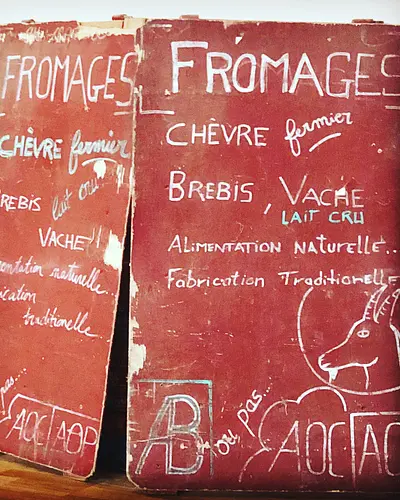 FROMAGES
CHÈVRE fermier
BREBIS lait cru !!
VACHE !!
mentation naturelle..
ication
traditionelle
pas....
AOC AOP
FROMAGES
CHÈVRE fermier
BREBIS, VACHE
LAIT CRU
ALIMENTATION NATURELLE..
Fabrication Traditionelle
AB ou pas... AOC AO